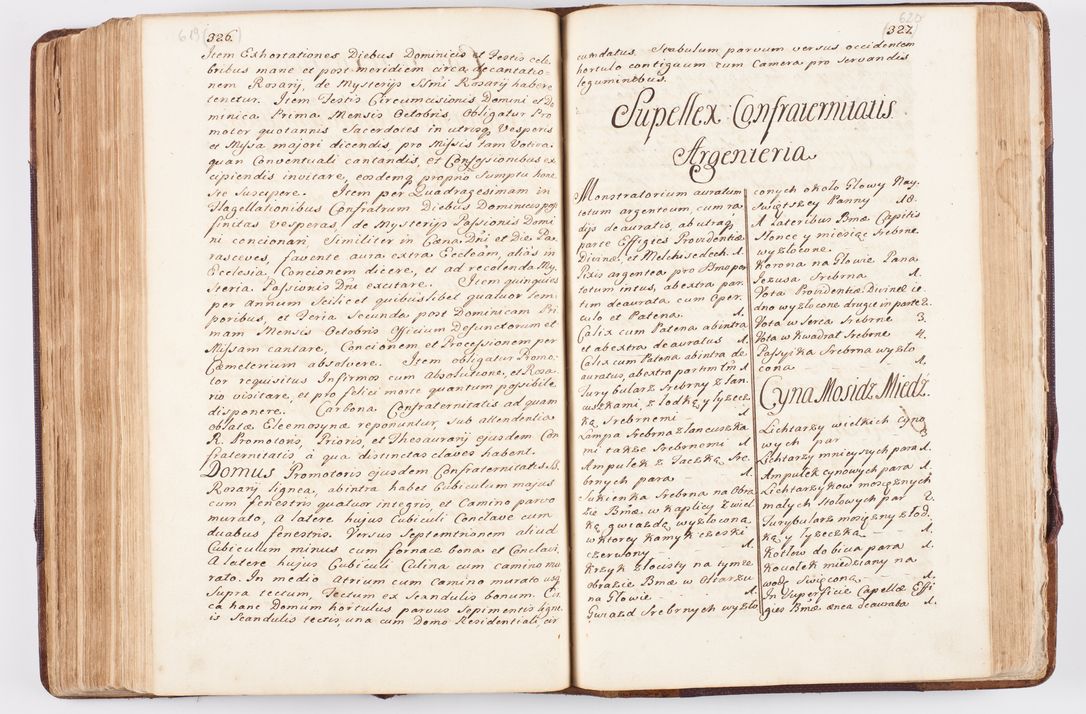 619
326.
Item Exhortationes Diebus Dominicis et Festis cele
bribus mane et post meridiem circa decantatio-
nem Rosarij, de Mysterijs SSmi Rosarij habere
tenetur. Item Festis Circumcisionis Domini et Do
minica Prima Mensis Octobris, Obligatur Pro
motor quotannis Sacerdotes in utrisq Vesperis
et Missa majori dicendis, pro Missis tam Votiva
quam Conventuali cantandis, et Confessionibus ex
cipiendis invitare, eosdemq proprio Sumptu hone
ste Suscipere. Item per Quadragesimam in
Flagellationibus Confratrum Diebus Dominicis post
finitas Vesperas, de Mysterijs Passionis Domi
ni concionari. Similiter in Cæna Dni et Die Pa
rasceves, favente aura extra Eccleam, aliàs in
Ecclesia Concionem dicere, et ad recolenda My
steria Passionis Dni excitare. Item quinquies
per Annum Scilicet quibuslibet quatuor tem
poribus, et Feria Secunda post Dominicam Pri
mam Mensis Octobris Officium Defunctorum et
Missam cantare, Concionem et Processionem per
Cæmeterium absolvere. Item obligatur Promo
tor requisitus Infirmos cum Absolutione, et Rosa
rio visitare, et pro felici morte quantum possibile
disponere. Carbona Confraternitatis ad quam
oblatæ Eleemosynæ reponuntur, sub attendentia
R. Promotoris, Prioris, et Thesaurarij ejusdem Con
fraternitatis, à qua distinctas claves habent.
Domus Promotoris ejusdem Confraternitatis SS.
Rosarij lignea, abintra habet Cubiculum majus
cum fenestris quatuor integris, et Camino parvo
murato, A latere hujus Cubiculi Conclave cum
duabus fenestris. Versus Septemtrionem aliud
Cubiculum minus cum fornace bona et Conclavi
A latere hujus Cubiculi Culina cum camino mu
rato. In medio Atrium cum Camino murato usq
Supra tectum, Tectum ex Scandulis bonum. Cir
ca hanc Domum hortulus parvus Sepimentis ligne
is Scandulis tectis, una cum Domo Residentiali, cir
620
327.
cumdatus. Stabulum parvum versus occidentem
hortulo contiguum cum Camera pro Servandis
leguminibus.
Supellex Confraternitatis
Argenteria
Monstratorium auratum
totum argenteum cum ra
dijs deauratis, ab utraq
parte Effigies Providentiæ
Divinæ, et Melchisedech. 1.
Pixis argentea pro Bmo por
totum intus, ab extra par
tim deaurata cum Oper
culo et Patena. 1.
Calix cum Patena abintra
et abextra deauratus 1.
Calix cum Patena abintra de
auratus, abextra partim tm 1.
Turybularz Srebrny z łan
cuszkami, z łodką y łyżecz
ką Srebrnemi 1.
Lampa Srebrna z łancuszka
mi także Srebrnemi 1.
Ampułek z Taczką Sre
brnych para 1.
Sukienka Srebrna na Obra
zie Bmæ, w Kaplicy z wiel
ką gwiazdą wyzłoconą
w ktorey Kamyk czeski
czerwony 1.
Krzyk złocisty na tymże
obrazie Bmæ w Ołtarzu
na Głowie 1.
Gwiazd Srebrnych wyzło
conych około Głowy Nay
Swiętszey Panny 18.
A Lateribus Bmæ Capitis
Słonce y miesiąc Srebrne
wyzłocone.
Korona na Głowie Pana
Jezusa Srebrna 1.
Vota Providentiæ Divinæ ie
dno wyzłocone drugie in parte 2.
Vota w Serca Srebrne 3.
Vota w Kwadrat Srebrne 4.
Passyika Srebrna wyzło
cona 1.
Cyna Mosidz Miedź.
Lichtarzy wielkich cyno
wych par
Lichtarzy mnieyszych para 1.
Ampułek cynowych para 1.
Lichtarzykow mosiężnych
małych Stołowych par 2.
Turybularz mosiężny z łod
ką y łyżeczką 1.
Kotłow do biva para 1.
Kociołek miedziany na
wodę święconą 1.
In Superficie Capellæ Effi
gies Bmæ ænea deaurata 1.